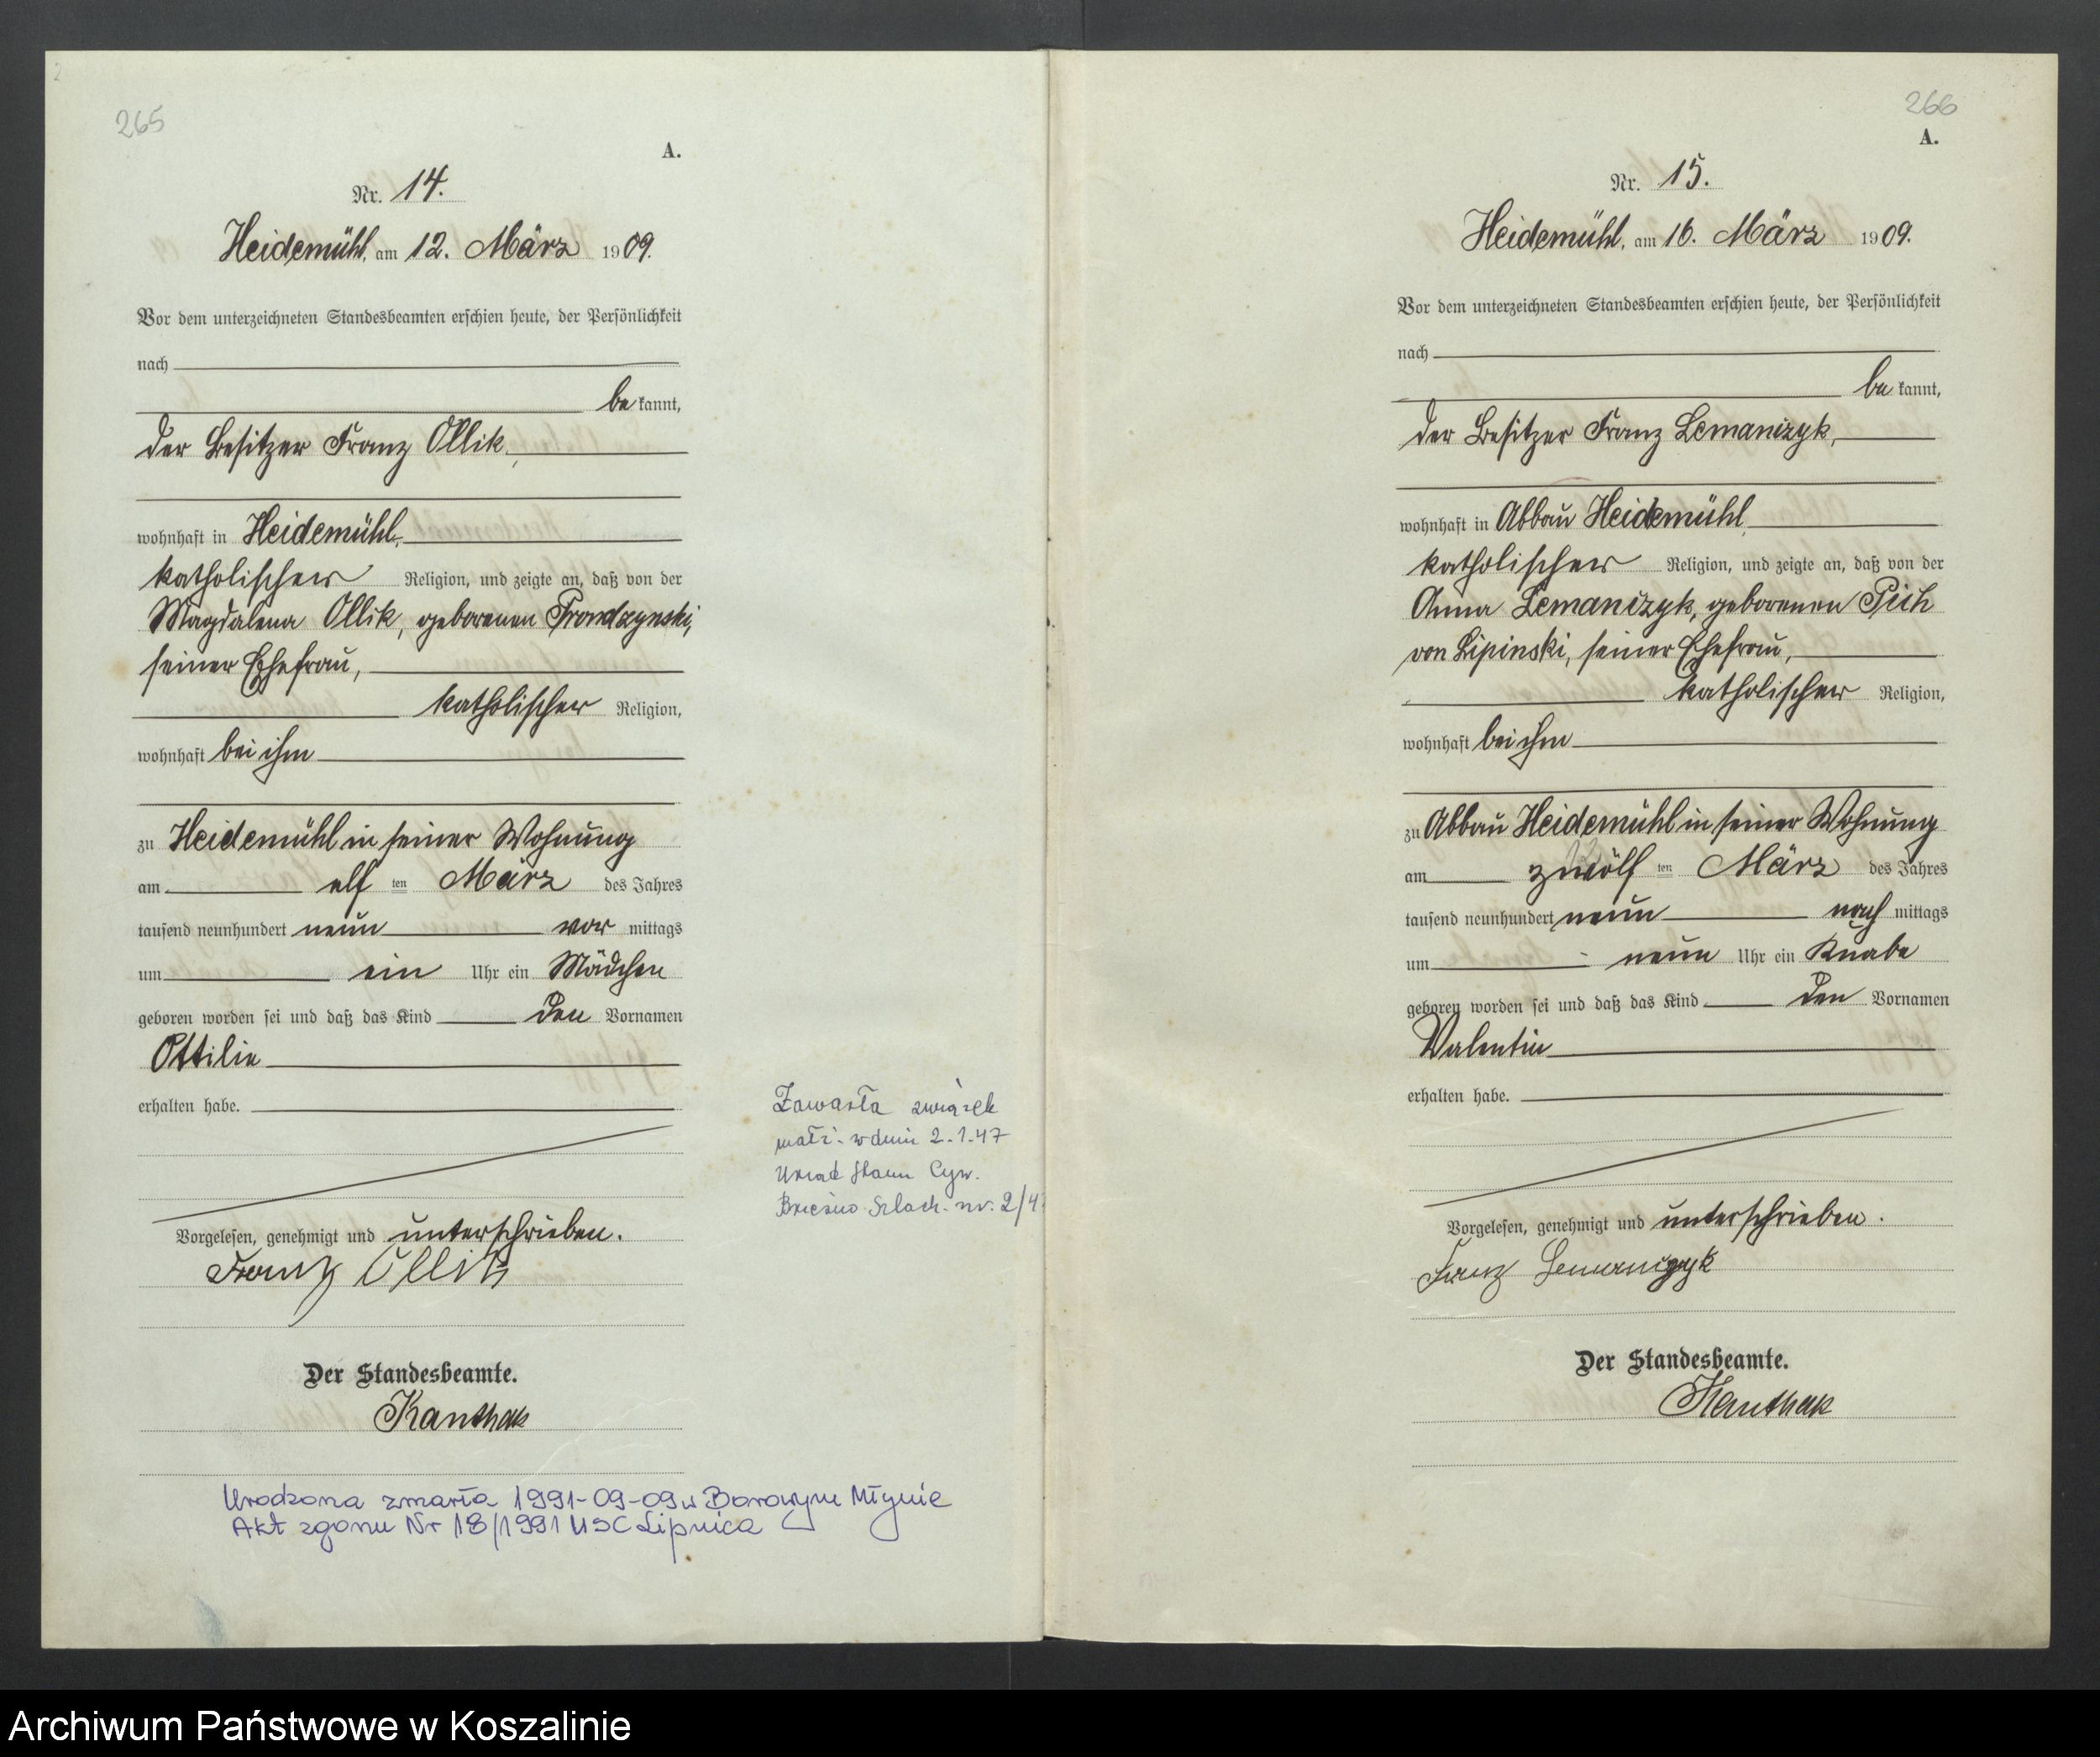 265
A.
Nr. 14.
Heidemühl, am 12. März 1909.
Vor dem unterzeichneten Standesbeamten erschien heute, der Persönlichkeit
nach
be kannt,
der Besitzer Franz Ollik,
wohnhaft in Heidemühl,
katholischer Religion, und zeigte an, daß von der
Magdalena Ollik, geborenen Prondzynski,
seiner Ehefrau,
katholischer Religion,
wohnhaft bei ihm
zu Heidemühl in seiner Wohnung
am elf ten März des Jahres
tausend neunhundert neun vor mittags
um ein Uhr ein Mädchen
geboren worden sei und daß das Kind den Vornamen
Ottilie
erhalten habe.
Zawarła związek
małż. w dniu 2.1.47
Urząd Stanu Cyw.
Brzeźno Szlach. nr. 2/4
Vorgelesen, genehmigt und unterschrieben.
Franz Ollik
Der Standesbeamte.
Kanthak
Urodzona zmarła 1991-09-09 w Borowym Młynie
Akt zgonu Nr 18/1991 USC Lipnica
266
A.
Nr. 15.
Heidemühl, am 16. März 1909.
Vor dem unterzeichneten Standesbeamten erschien heute, der Persönlichkeit
nach
be kannt,
der Besitzer Franz Lemanczyk,
wohnhaft in Abbau Heidemühl,
katholischer Religion, und zeigte an, daß von der
Anna Lemanczyk, geborenen Pich
von Lipinski, seiner Ehefrau,
katholischer Religion,
wohnhaft bei ihm
zu Abbau Heidemühl in seiner Wohnung
am zwölf ten März des Jahres
tausend neunhundert neun nach mittags
um neun Uhr ein Knabe
geboren worden sei und daß das Kind den Vornamen
Valentin
erhalten habe.
Vorgelesen, genehmigt und unterschrieben.
Franz Lemanczyk
Der Standesbeamte.
Kanthak
Archiwum Państwowe w Koszalinie